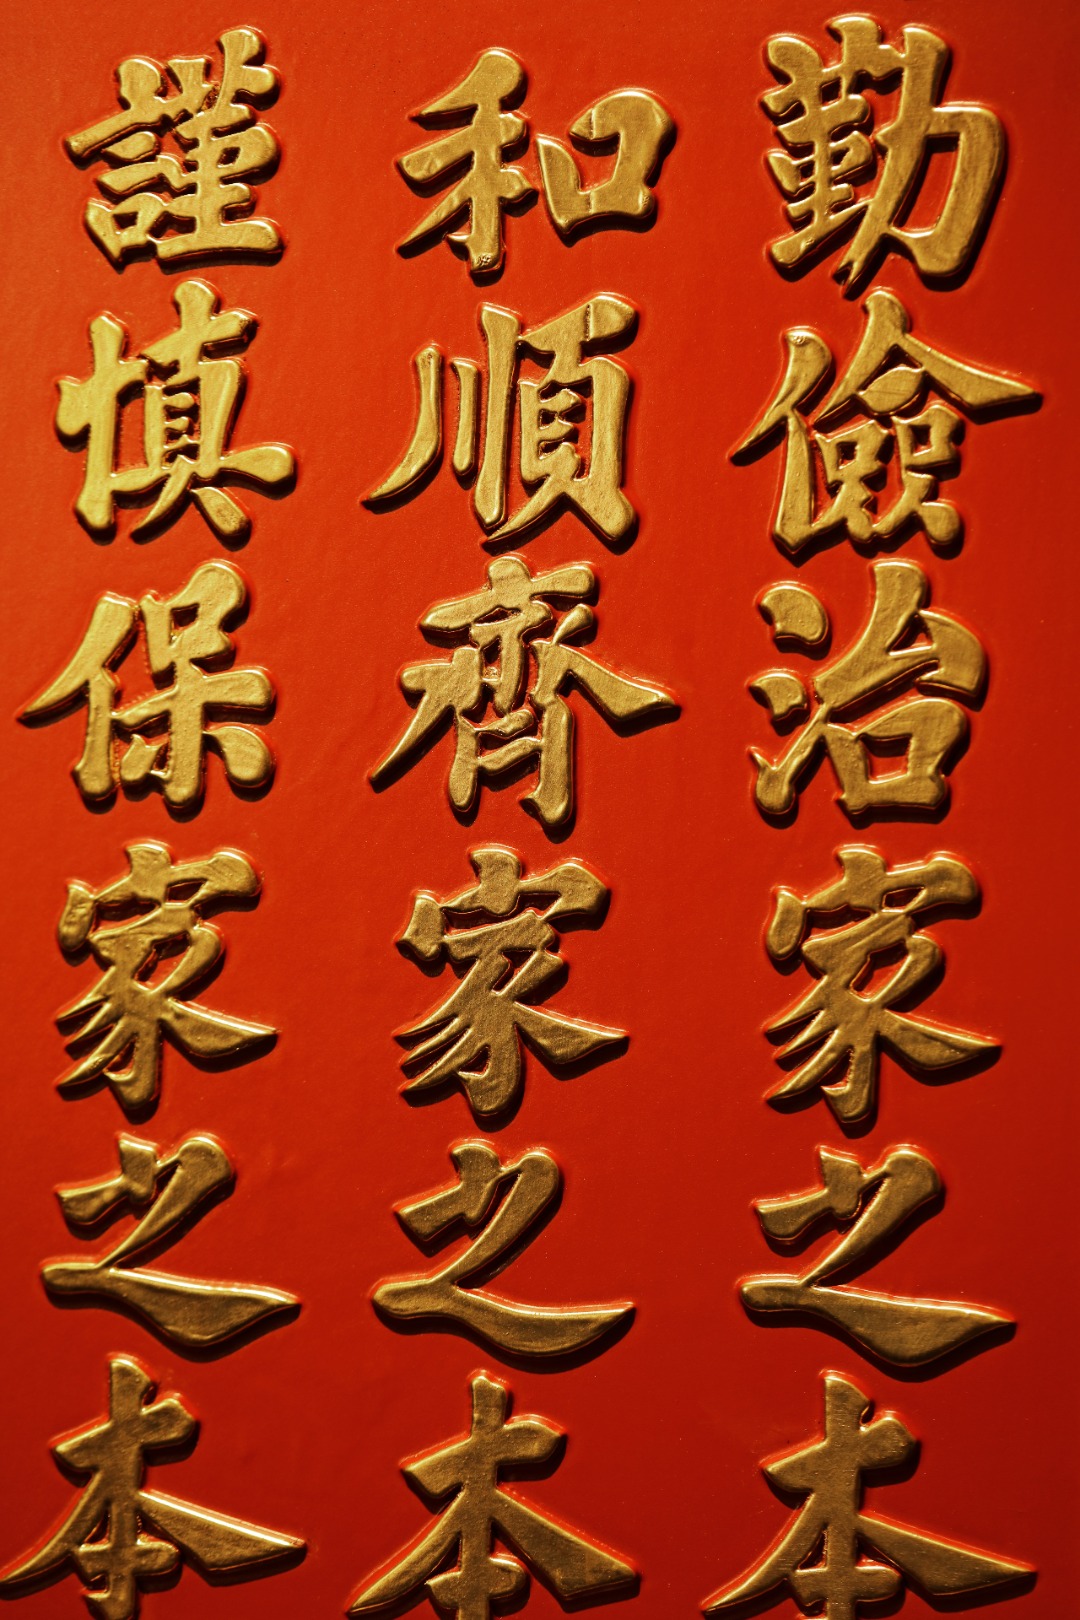 勤儉治家之本
和順齊家之本
謹慎保家之本